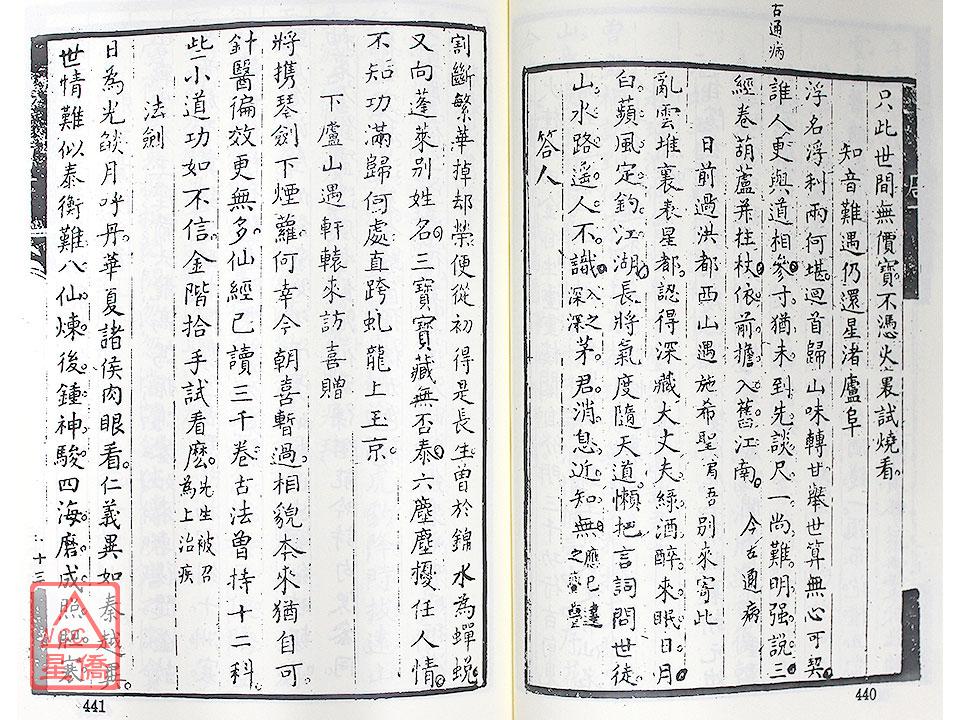 古通病
只此世間無價寶不憑火裏試燒看
知音難遇仍還星渚廬阜
浮名浮利兩何堪迴首歸山味轉甘舉世算無心可契
誰人更與道相參寸猶未到先談尺一尚難明强說三
經卷葫蘆并拄杖依前擔入舊江南 今古通病
日前過洪都西山遇施希聖肩吾別來寄此
亂雲堆裏表星都認得深藏大丈夫綠酒醉來眠日月
白蘋風定釣江湖長將氣度隨天道懶把言詞問世徒
山水路遙人不識入之深深茅君消息近知無應已達之
答人
割斷繁華掉却榮便從初得是長生曾於錦水為蟬蛻
又向蓬萊別姓名三寶寶藏無否泰六塵塵擾任人情
不知功滿歸何處直跨虬龍上玉京
下廬山遇軒轅來訪喜贈
將攜琴劍下煙蘿何幸今朝喜暫過相貌本來猶自可
針醫徧效更無多仙經已讀三千卷古法曾持十二科
些小道功如不信金階拾手試看麽先生被召為上治疾
法劍
日為光燄月呼丹華夏諸侯肉眼看仁義異如秦越異
世情難似泰衡難八仙煉後鍾神駿四海磨成照膽寒
十三
星僑
441
440